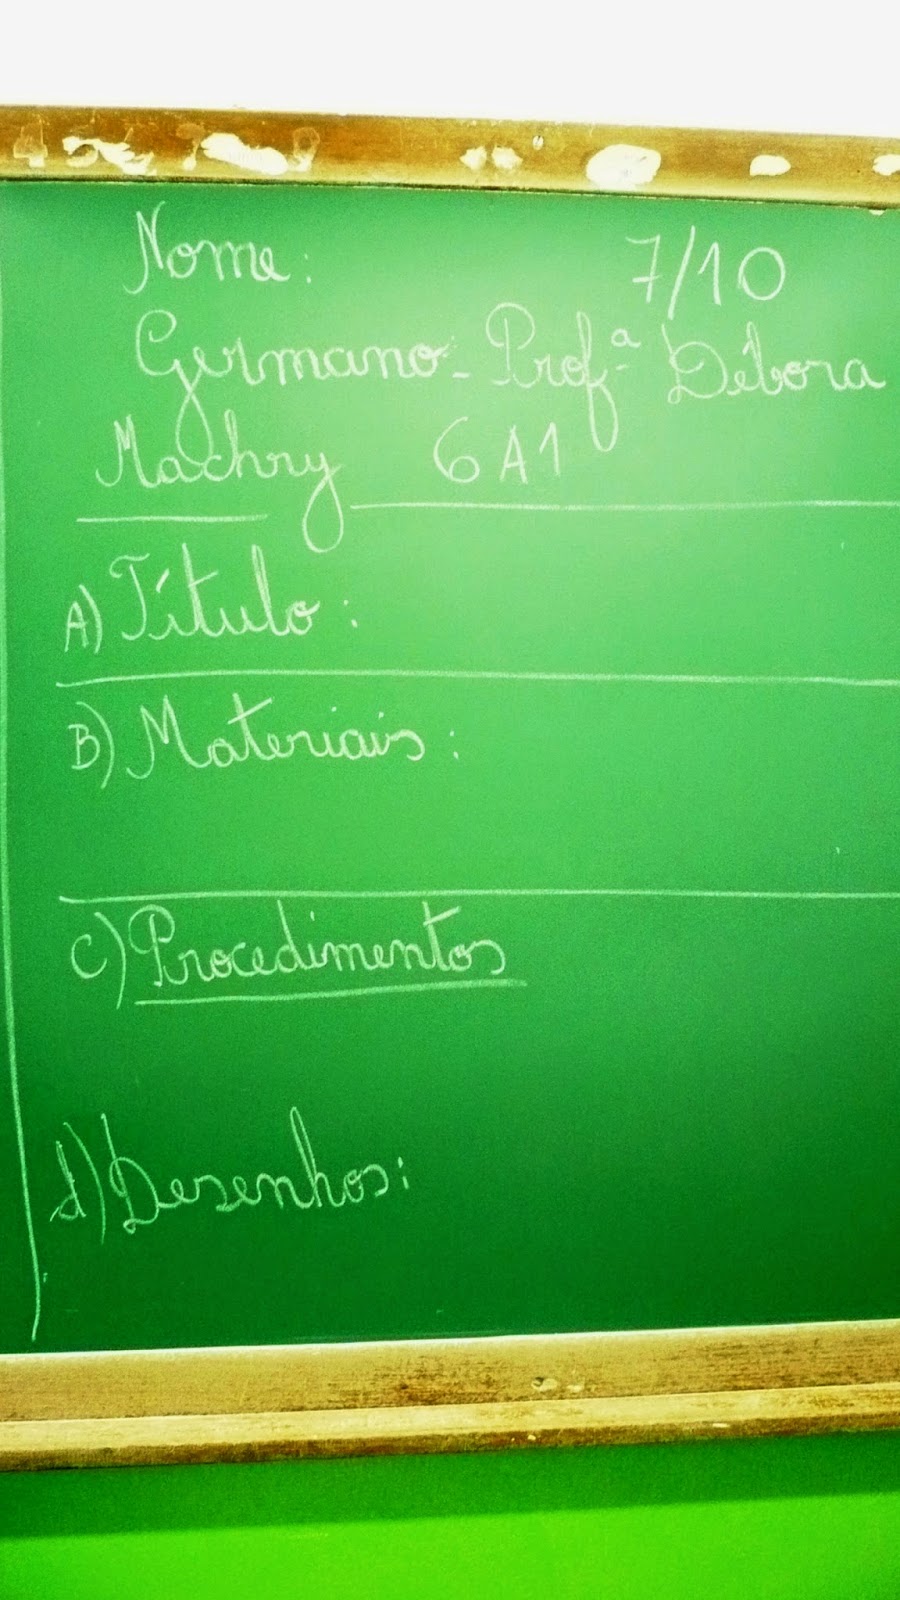 Nome: 7/10
Germano - Prof.ª Débora
Machry 6A1
A) Título:
B) Materiais:
C) Procedimentos
d) Desenhos: